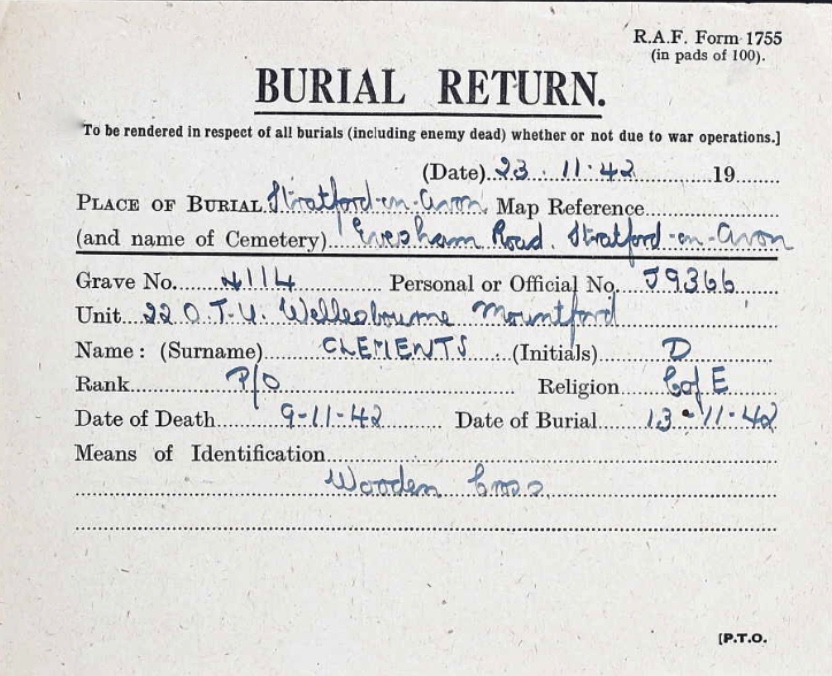 R.A.F. Form 1755
(in pads of 100).
BURIAL RETURN.
To be rendered in respect of all burials (including enemy dead) whether or not due to war operations.]
(Date) 23.11.42 19
PLACE OF BURIAL Stratford-on-Avon Map Reference
(and name of Cemetery) Evesham Road. Stratford-on-Avon
Grave No. 4114 Personal or Official No. J9366
Unit 22 O.T.U. Wellesbourne Mountford
Name: (Surname) CLEMENTS. (Initials) D
Rank P/O Religion C of E
Date of Death 9-11-42 Date of Burial 13-11-42
Means of Identification
Wooden Cross
[P.T.O.